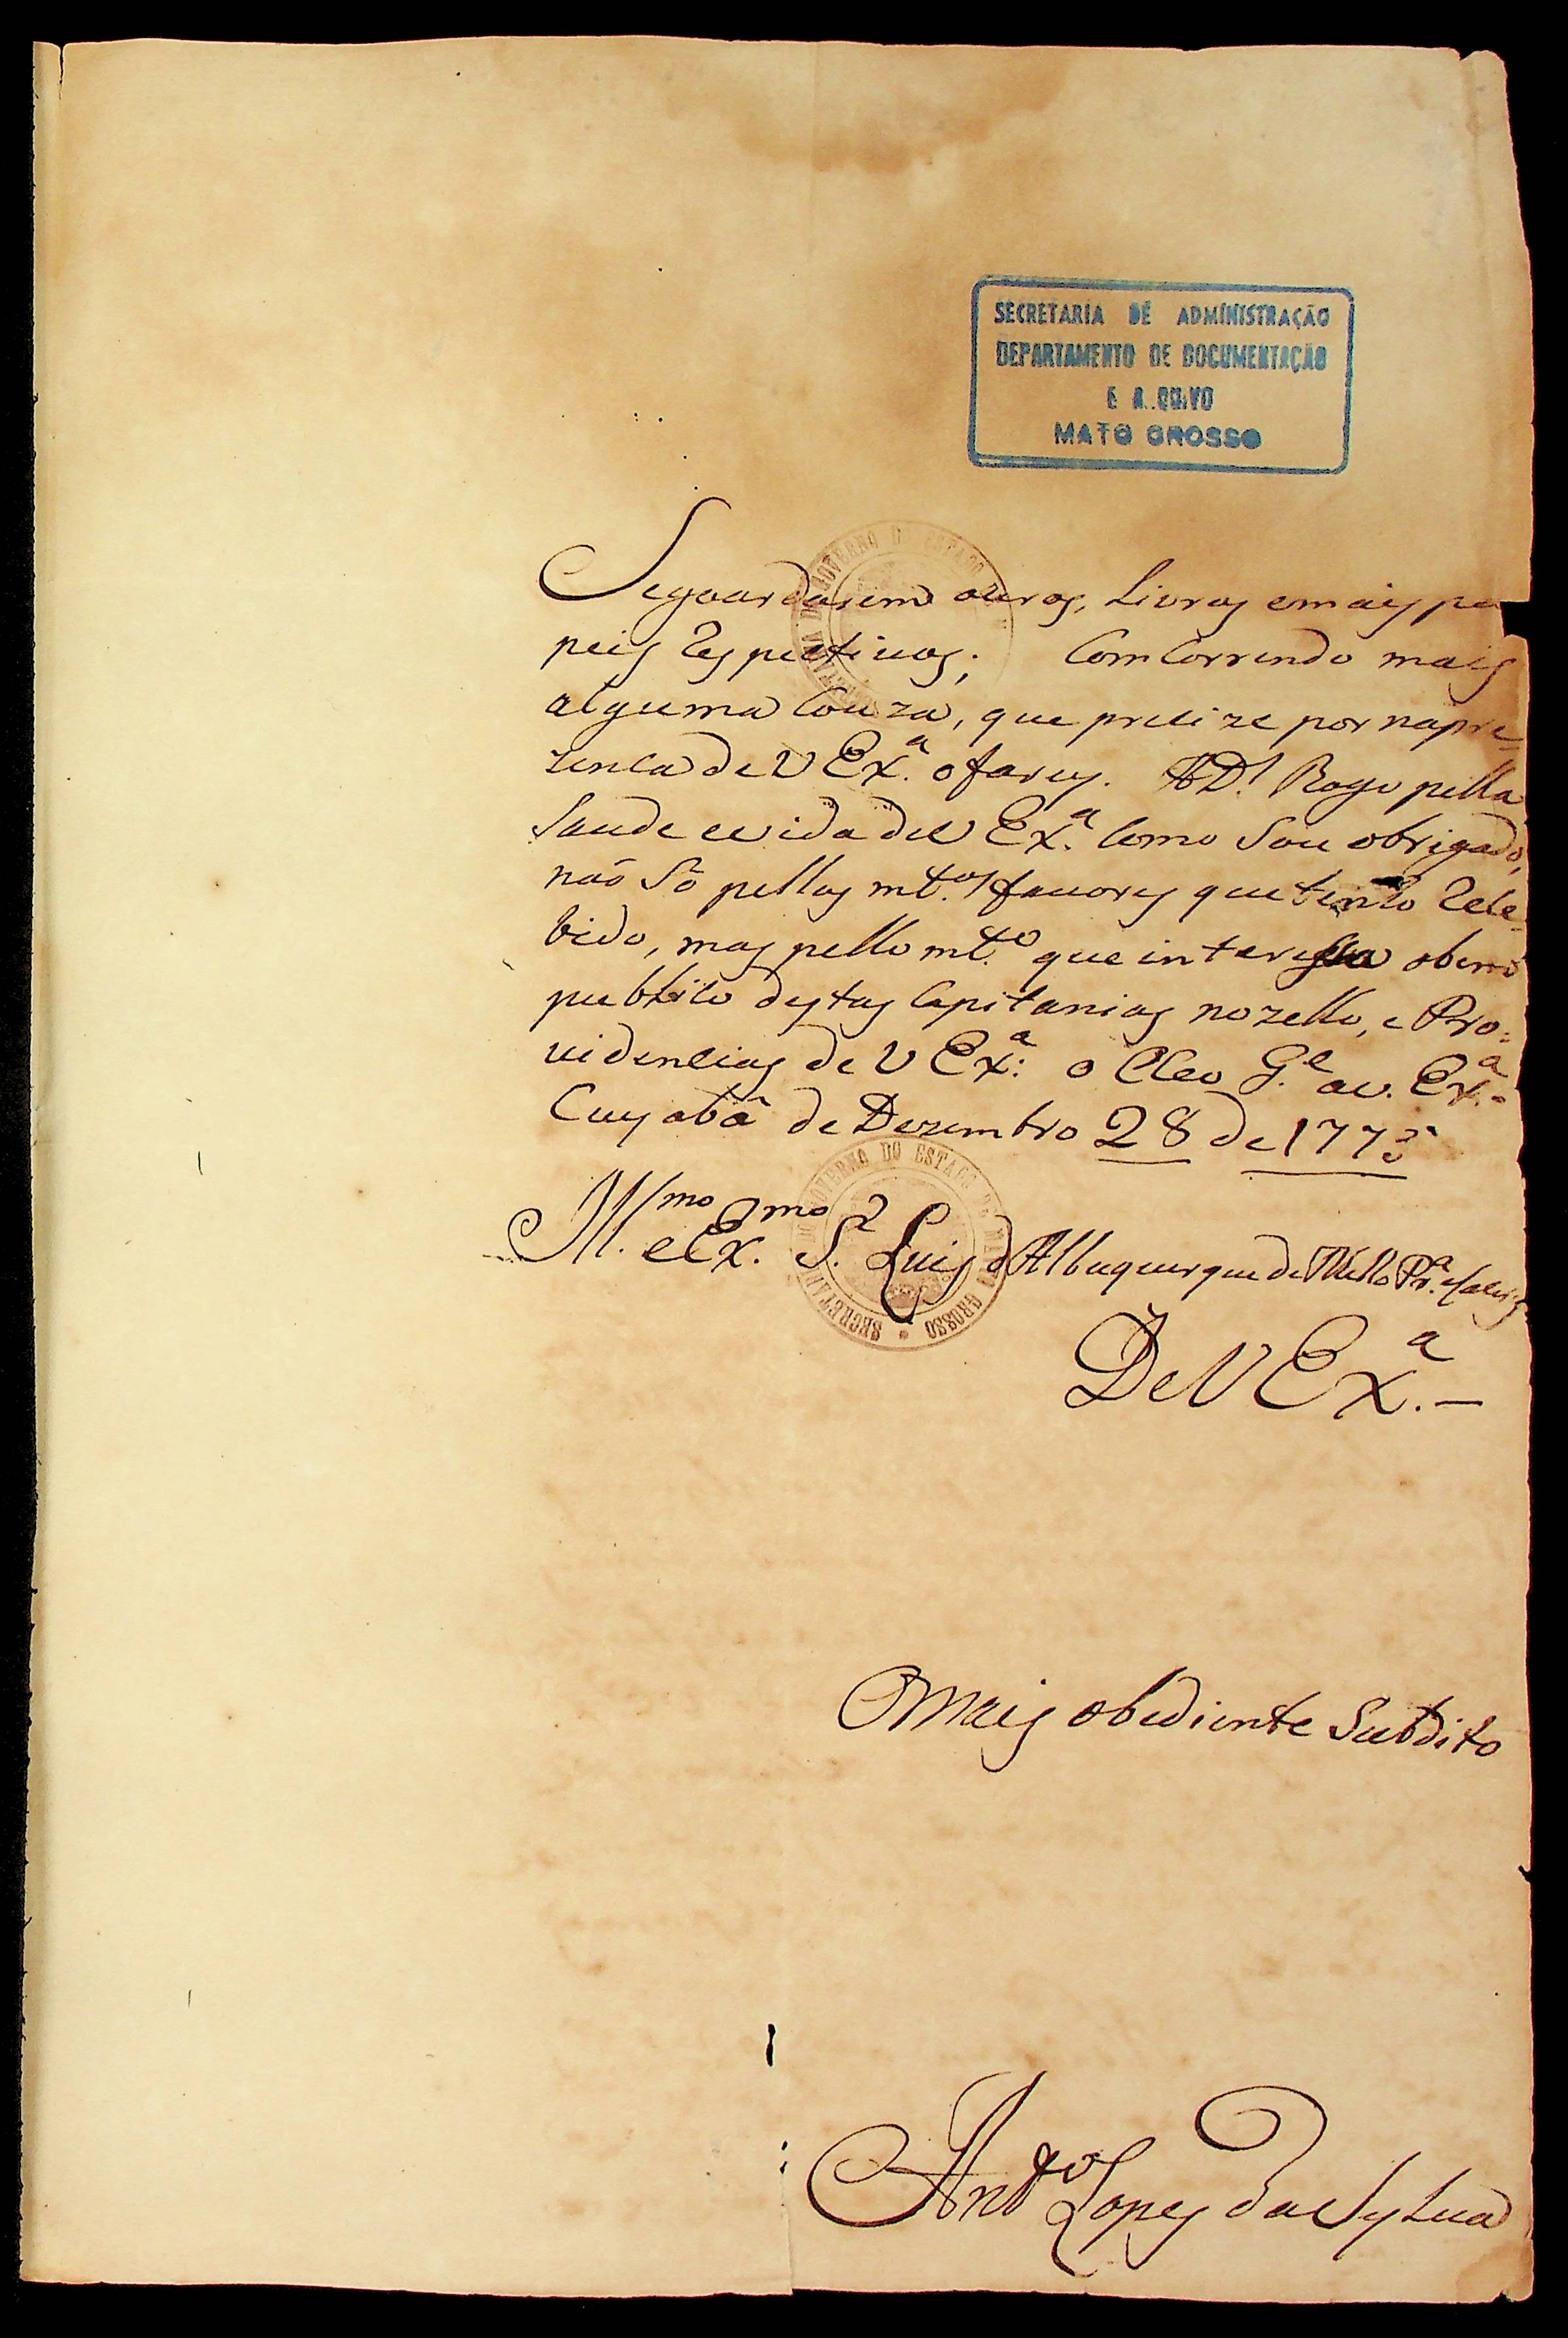 SECRETARIA DE ADMINISTRAÇÃO
DEPARTAMENTO DE DOCUMENTAÇÃO
E A..QUIVO
MATO GROSSO
Seguardarem ouros, Livros emais pa
peis Respectivos; ComCorrendo mais
alguma Couza, que precize por napre-
zenca de V Ex.ª ofarey. A D.s Rogo pella
Saude evida deV Ex.ª Como Sou obrigado,
não Só pellos mt.os favores quetenho Rece-
bido, mas pello mt.o que interessa obem
publico destas Capitanias nozello, e Pro-
videncias de V Ex.ª o Ceo G.e a v. Ex.ª
Cuyabâ de Dezembro 28 de 1773
Ill.mo eEx.mo S.r Luis dAlbuquerque de Mello Pr.ª eCaceres
De V Ex.ª
SECRETARIA DO GOVERNO DO ESTADO DE MATO GROSSO
Omais obediente Subdito
Ant.o Lopes da Sylva